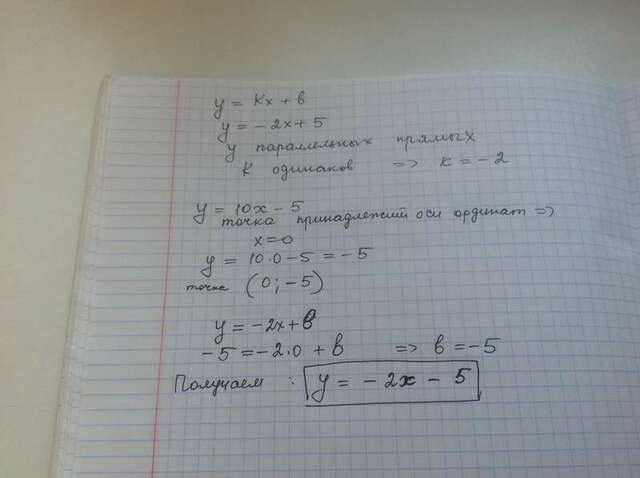 y = Kx + b
y = -2x + 5
у параллельных прямых
K одинаков => K = -2
y = 10x - 5
точка принадлежит оси ординат =>
x = 0
y = 10·0 - 5 = -5
точка (0; -5)
y = -2x + b
-5 = -2·0 + b => b = -5
Получаем : y = -2x - 5